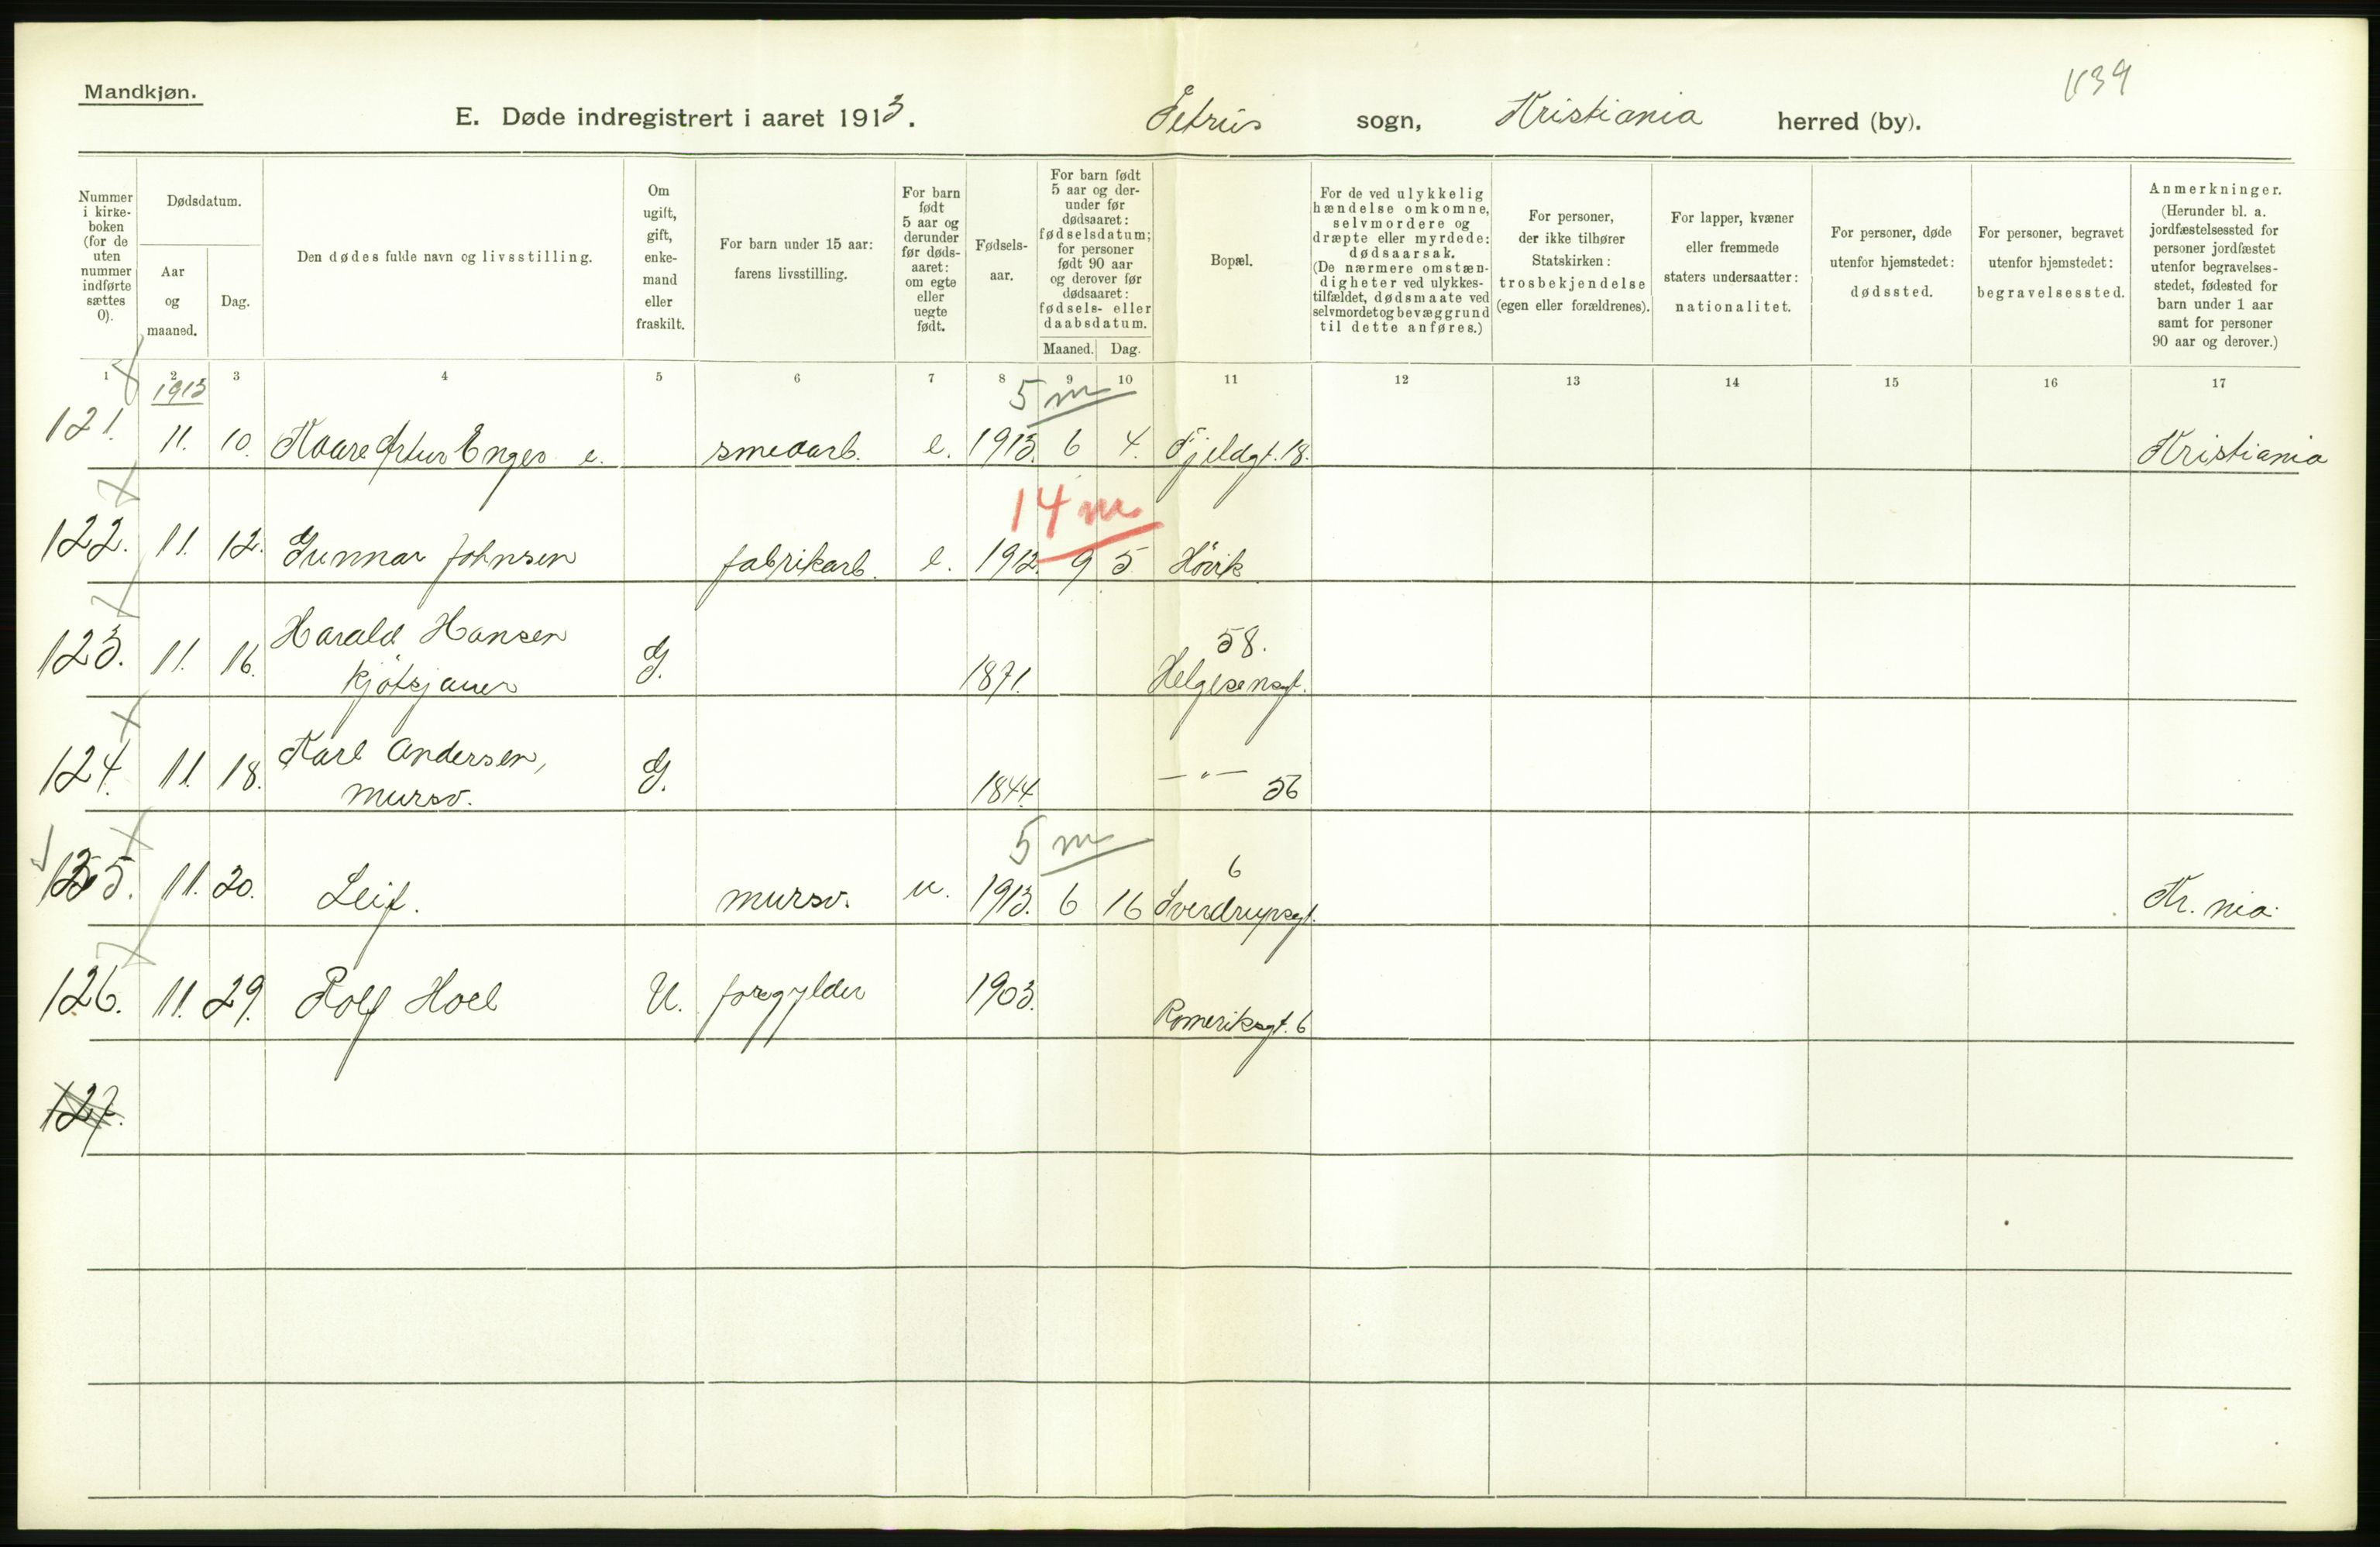 1139
Mandkjøn.
E. Døde indregistrert i aaret 1913. Petrus sogn, Kristiania herred (by).
Nummer i kirke-boken (for de uten nummer indførte sættes 0).
Dødsdatum.
Aar og maaned.
Dag.
Den dødes fulde navn og livsstilling.
Om ugift, gift, enke-mand eller fraskilt.
For barn under 15 aar: farens livsstilling.
For barn født 5 aar og derunder før døds-aaret: om egte eller uegte født.
Fødsels-aar.
For barn født 5 aar og der-under før dødsaaret: fødselsdatum; for personer født 90 aar og derover før dødsaaret: fødsels- eller daabsdatum.
Maaned. Dag.
Bopæl.
For de ved ulykkelig hændelse omkomne, selvmordere og dræpte eller myrdede: dødsaarsak. (De nærmere omstæn-digheter ved ulykkes-tilfældet, dødsmaate ved selvmordet og bevæggrund til dette anføres.)
For personer, der ikke tilhører Statskirken: trosbekjendelse (egen eller forældrenes).
For lapper, kvæner eller fremmede staters undersaatter: nationalitet.
For personer, døde utenfor hjemstedet: dødssted.
For personer, begravet utenfor hjemstedet: begravelsessted.
Anmerkninger. (Herunder bl. a. jordfæstelsessted for personer jordfæstet utenfor begravelses-stedet, fødested for barn under 1 aar samt for personer 90 aar og derover.)
1 2 3 4 5 6 7 8 9 10 11 12 13 14 15 16 17
1913
5 m
121. 11. 10. Kaare Artur Enger e. smedarb. e. 1913. 6 4. Fjeldgt. 18. Kristiania
14 m
122. 11. 12. Gunnar Johnsen fabrikarb. e. 1912. 9 5 Høvik
123. 11. 16. Harald Hansen G. 1871. 58.
kjøtsjauer Helgesensgt.
124. 11. 18. Karl Andersen, G. 1844 — " — 56
mursv.
5 m
125. 11. 20. Leif. mursv. u. 1913. 6 16 6
Sverdrupsgt. Kr.nia.
126. 11. 29. Rolf Hoel U. forgylder 1903. Romeriksgt. 6
127.